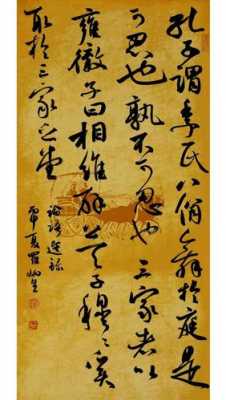 孔子謂季氏八佾舞於庭是
可忍也孰不可忍也三家者以
雍徹子曰相維辟公天子穆〻奚
取於三家之堂
論語選錄
丙申夏羅炳生